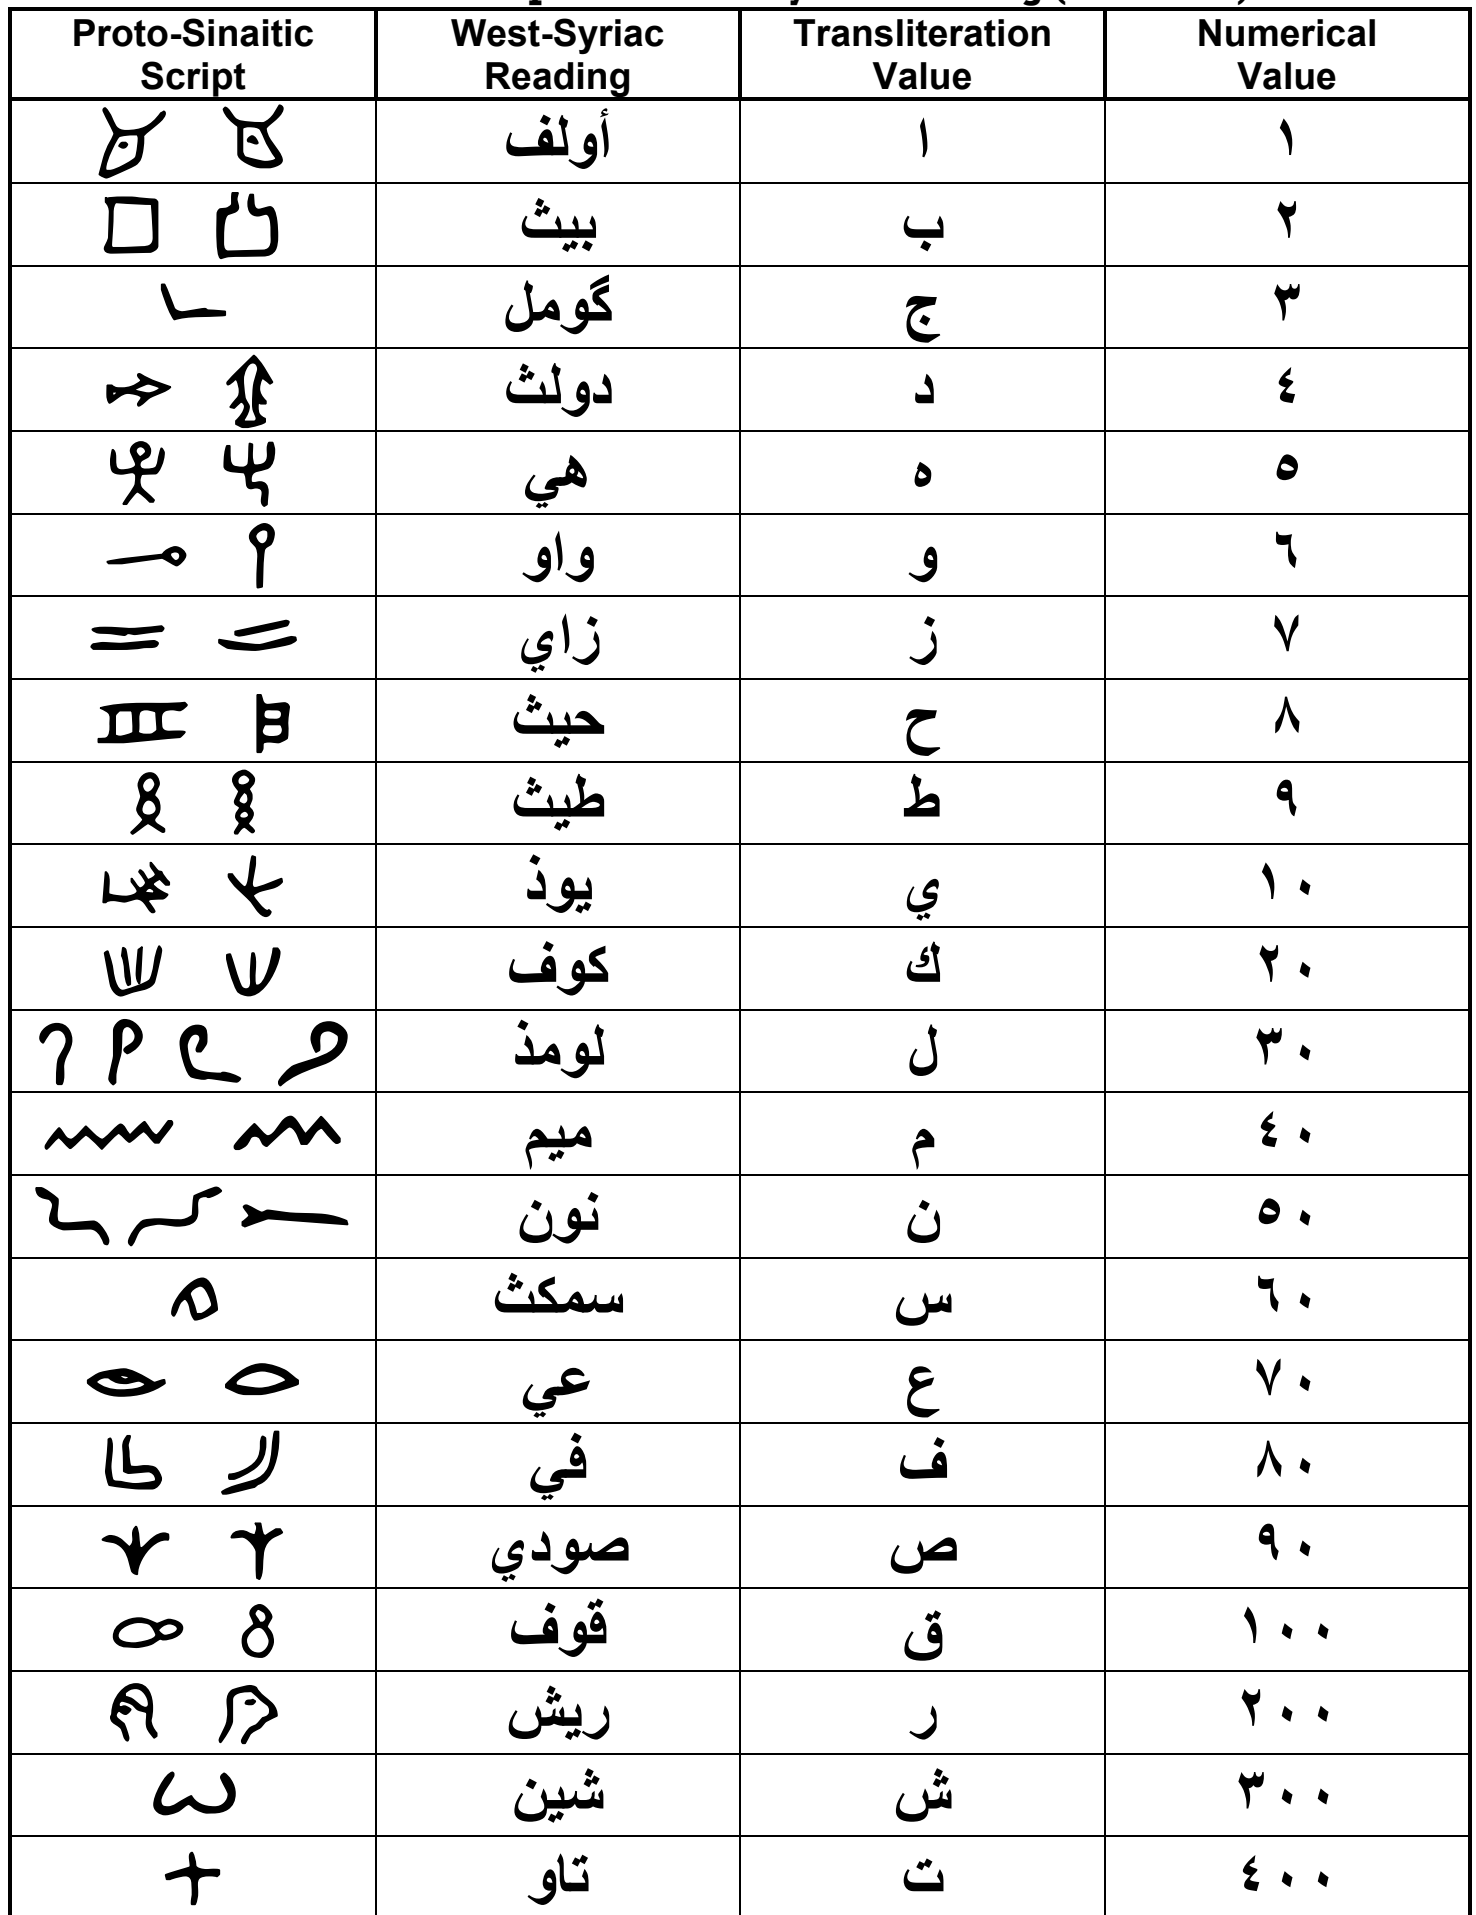 Proto-Sinaitic Script | West-Syriac Reading | Transliteration Value | Numerical Value
أولف | ا | ١
بيث | ب | ٢
گومل | ج | ٣
دولث | د | ٤
هي | ه | ٥
واو | و | ٦
زاي | ز | ٧
حيث | ح | ٨
طيث | ط | ٩
يوذ | ي | ١٠
كوف | ك | ٢٠
لومذ | ل | ٣٠
ميم | م | ٤٠
نون | ن | ٥٠
سمكث | س | ٦٠
عي | ع | ٧٠
في | ف | ٨٠
صودي | ص | ٩٠
قوف | ق | ١٠٠
ريش | ر | ٢٠٠
شين | ش | ٣٠٠
تاو | ت | ٤٠٠